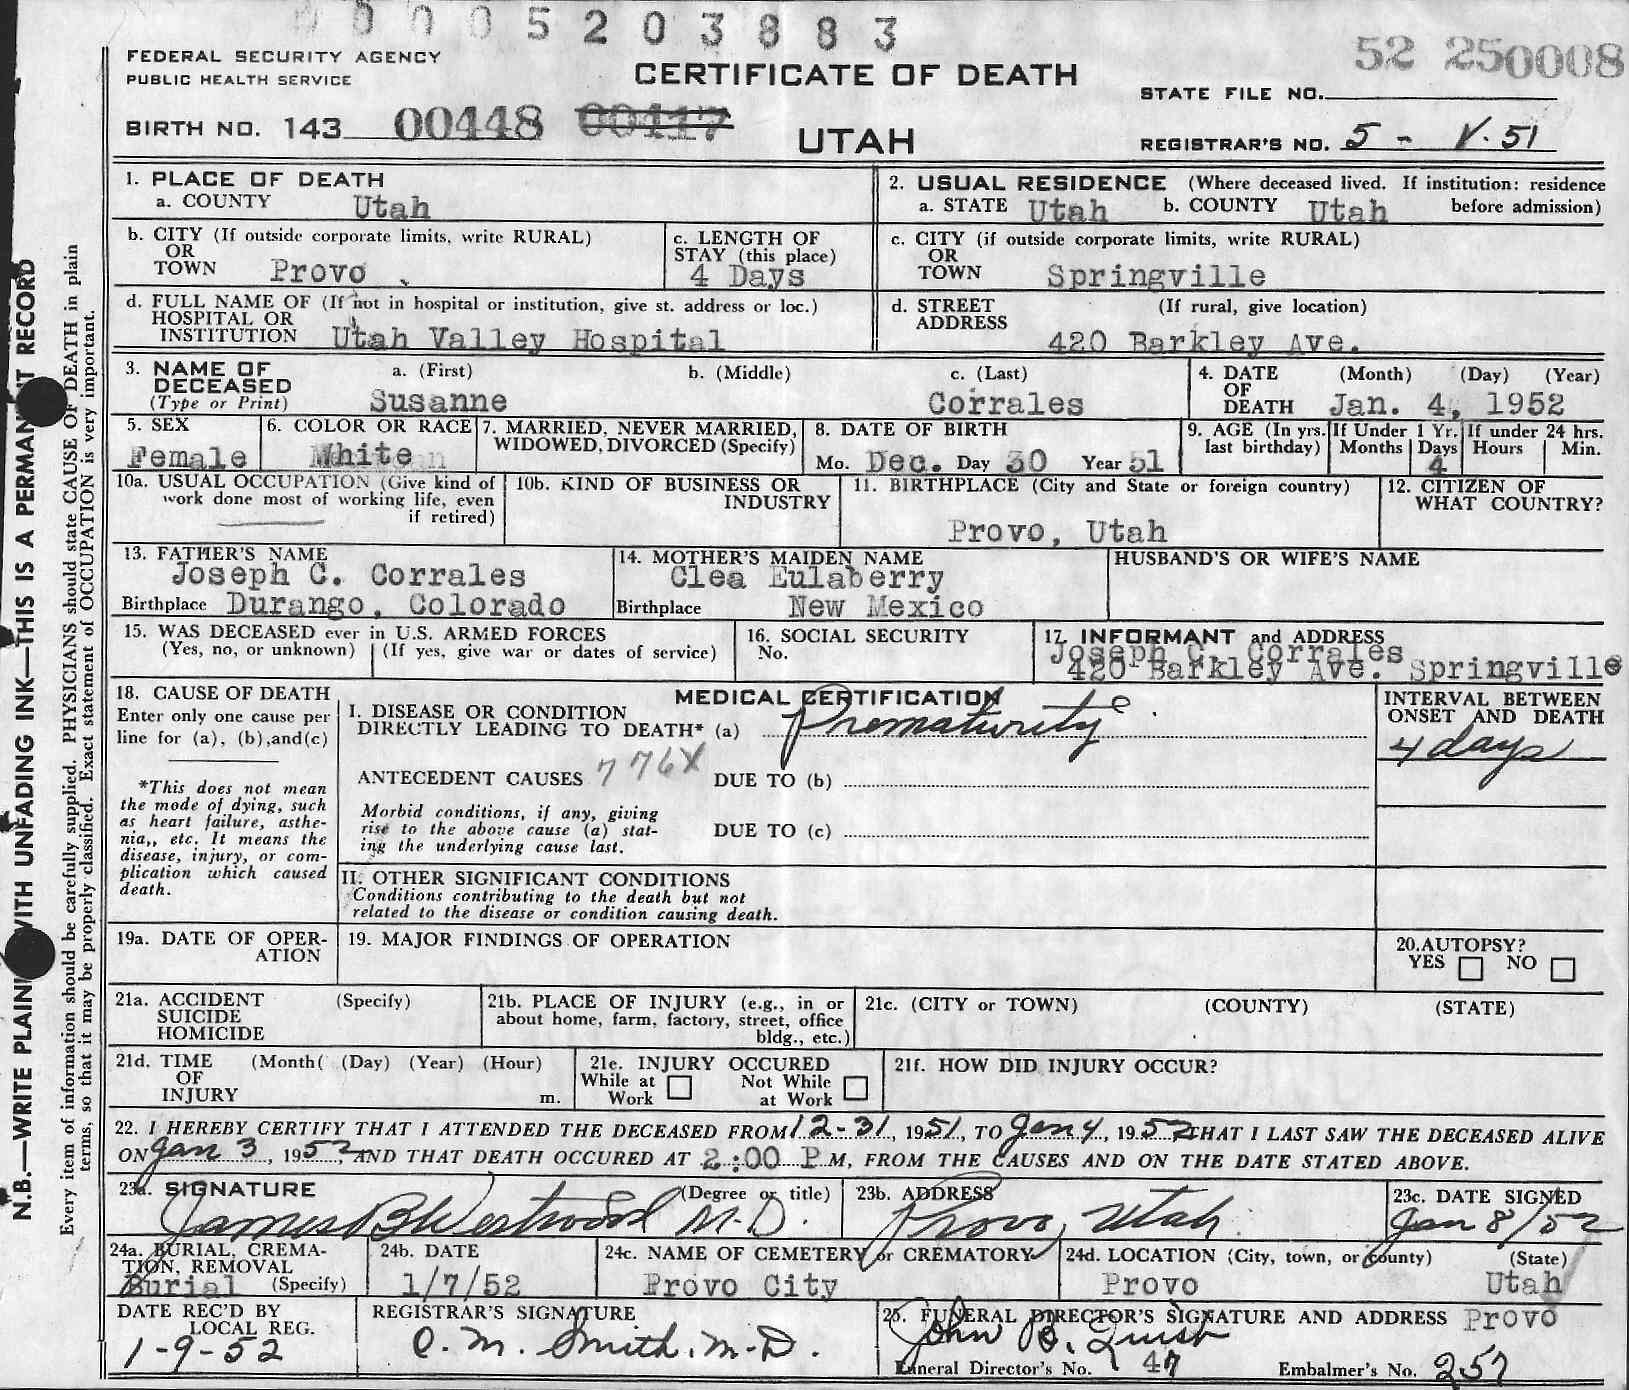 0 0 0 0 5 2 0 3 8 8 3
52 250008
FEDERAL SECURITY AGENCY
PUBLIC HEALTH SERVICE
CERTIFICATE OF DEATH
STATE FILE NO.
BIRTH NO. 143 00448 00417
UTAH
REGISTRAR'S NO. 5 - V-51
1. PLACE OF DEATH
a. COUNTY Utah
2. USUAL RESIDENCE (Where deceased lived. If institution: residence before admission)
a. STATE Utah b. COUNTY Utah
b. CITY (If outside corporate limits, write RURAL)
OR
TOWN Provo
c. LENGTH OF
STAY (this place)
4 Days
c. CITY (if outside corporate limits, write RURAL)
OR
TOWN Springville
d. FULL NAME OF (If not in hospital or institution, give st. address or loc.)
HOSPITAL OR
INSTITUTION Utah Valley Hospital
d. STREET (If rural, give location)
ADDRESS
420 Barkley Ave.
3. NAME OF a. (First) b. (Middle) c. (Last)
DECEASED
(Type or Print) Susanne Corrales
4. DATE (Month) (Day) (Year)
OF
DEATH Jan. 4, 1952
5. SEX
Female
6. COLOR OR RACE
White
7. MARRIED, NEVER MARRIED,
WIDOWED, DIVORCED (Specify)
8. DATE OF BIRTH
Mo. Dec. Day 30 Year 51
9. AGE (In yrs. last birthday)
If Under 1 Yr.
Months Days
4
If under 24 hrs.
Hours Min.
10a. USUAL OCCUPATION (Give kind of
work done most of working life, even
if retired)
10b. KIND OF BUSINESS OR
INDUSTRY
11. BIRTHPLACE (City and State or foreign country)
Provo, Utah
12. CITIZEN OF
WHAT COUNTRY?
13. FATHER'S NAME
Joseph C. Corrales
Birthplace Durango, Colorado
14. MOTHER'S MAIDEN NAME
Clea Eulaberry
Birthplace New Mexico
HUSBAND'S OR WIFE'S NAME
15. WAS DECEASED ever in U.S. ARMED FORCES
(Yes, no, or unknown) (If yes, give war or dates of service)
16. SOCIAL SECURITY
No.
17. INFORMANT and ADDRESS
Joseph C. Corrales
420 Barkley Ave. Springville
18. CAUSE OF DEATH
Enter only one cause per
line for (a), (b),and(c)
*This does not mean
the mode of dying, such
as heart failure, asthe-
nia,, etc. It means the
disease, injury, or com-
plication which caused
death.
MEDICAL CERTIFICATION
I. DISEASE OR CONDITION
DIRECTLY LEADING TO DEATH* (a) Prematurity
ANTECEDENT CAUSES 776X DUE TO (b)
Morbid conditions, if any, giving
rise to the above cause (a) stat-
ing the underlying cause last.
DUE TO (c)
II. OTHER SIGNIFICANT CONDITIONS
Conditions contributing to the death but not
related to the disease or condition causing death.
INTERVAL BETWEEN
ONSET AND DEATH
4 days
19a. DATE OF OPER-
ATION
19. MAJOR FINDINGS OF OPERATION
20.AUTOPSY?
YES NO
21a. ACCIDENT (Specify)
SUICIDE
HOMICIDE
21b. PLACE OF INJURY (e.g., in or
about home, farm, factory, street, office
bldg., etc.)
21c. (CITY or TOWN) (COUNTY) (STATE)
21d. TIME (Month( (Day) (Year) (Hour)
OF
INJURY m.
21e. INJURY OCCURED
While at Work Not While at Work
21f. HOW DID INJURY OCCUR?
22. I HEREBY CERTIFY THAT I ATTENDED THE DECEASED FROM 12-31, 1951, TO Jan 4, 1952, THAT I LAST SAW THE DECEASED ALIVE
ON Jan 3, 1952, AND THAT DEATH OCCURED AT 2:00 P M, FROM THE CAUSES AND ON THE DATE STATED ABOVE.
23a. SIGNATURE (Degree or title)
James B Westwood M.D.
23b. ADDRESS
Provo, Utah
23c. DATE SIGNED
Jan 8/52
24a. BURIAL, CREMA-
TION, REMOVAL
Burial (Specify)
24b. DATE
1/7/52
24c. NAME OF CEMETERY or CREMATORY
Provo City
24d. LOCATION (City, town, or county) (State)
Provo Utah
DATE REC'D BY
LOCAL REG.
1-9-52
REGISTRAR'S SIGNATURE
C. M. Smith. M.D.
25. FUNERAL DIRECTOR'S SIGNATURE AND ADDRESS Provo
John B.
Funeral Director's No. 47 Embalmer's No. 257
N.B.—WRITE PLAINLY WITH UNFADING INK—THIS IS A PERMANENT RECORD
Every item of information should be carefully supplied. PHYSICIANS should state CAUSE OF DEATH in plain
terms, so that it may be properly classified. Exact statement of OCCUPATION is very important.